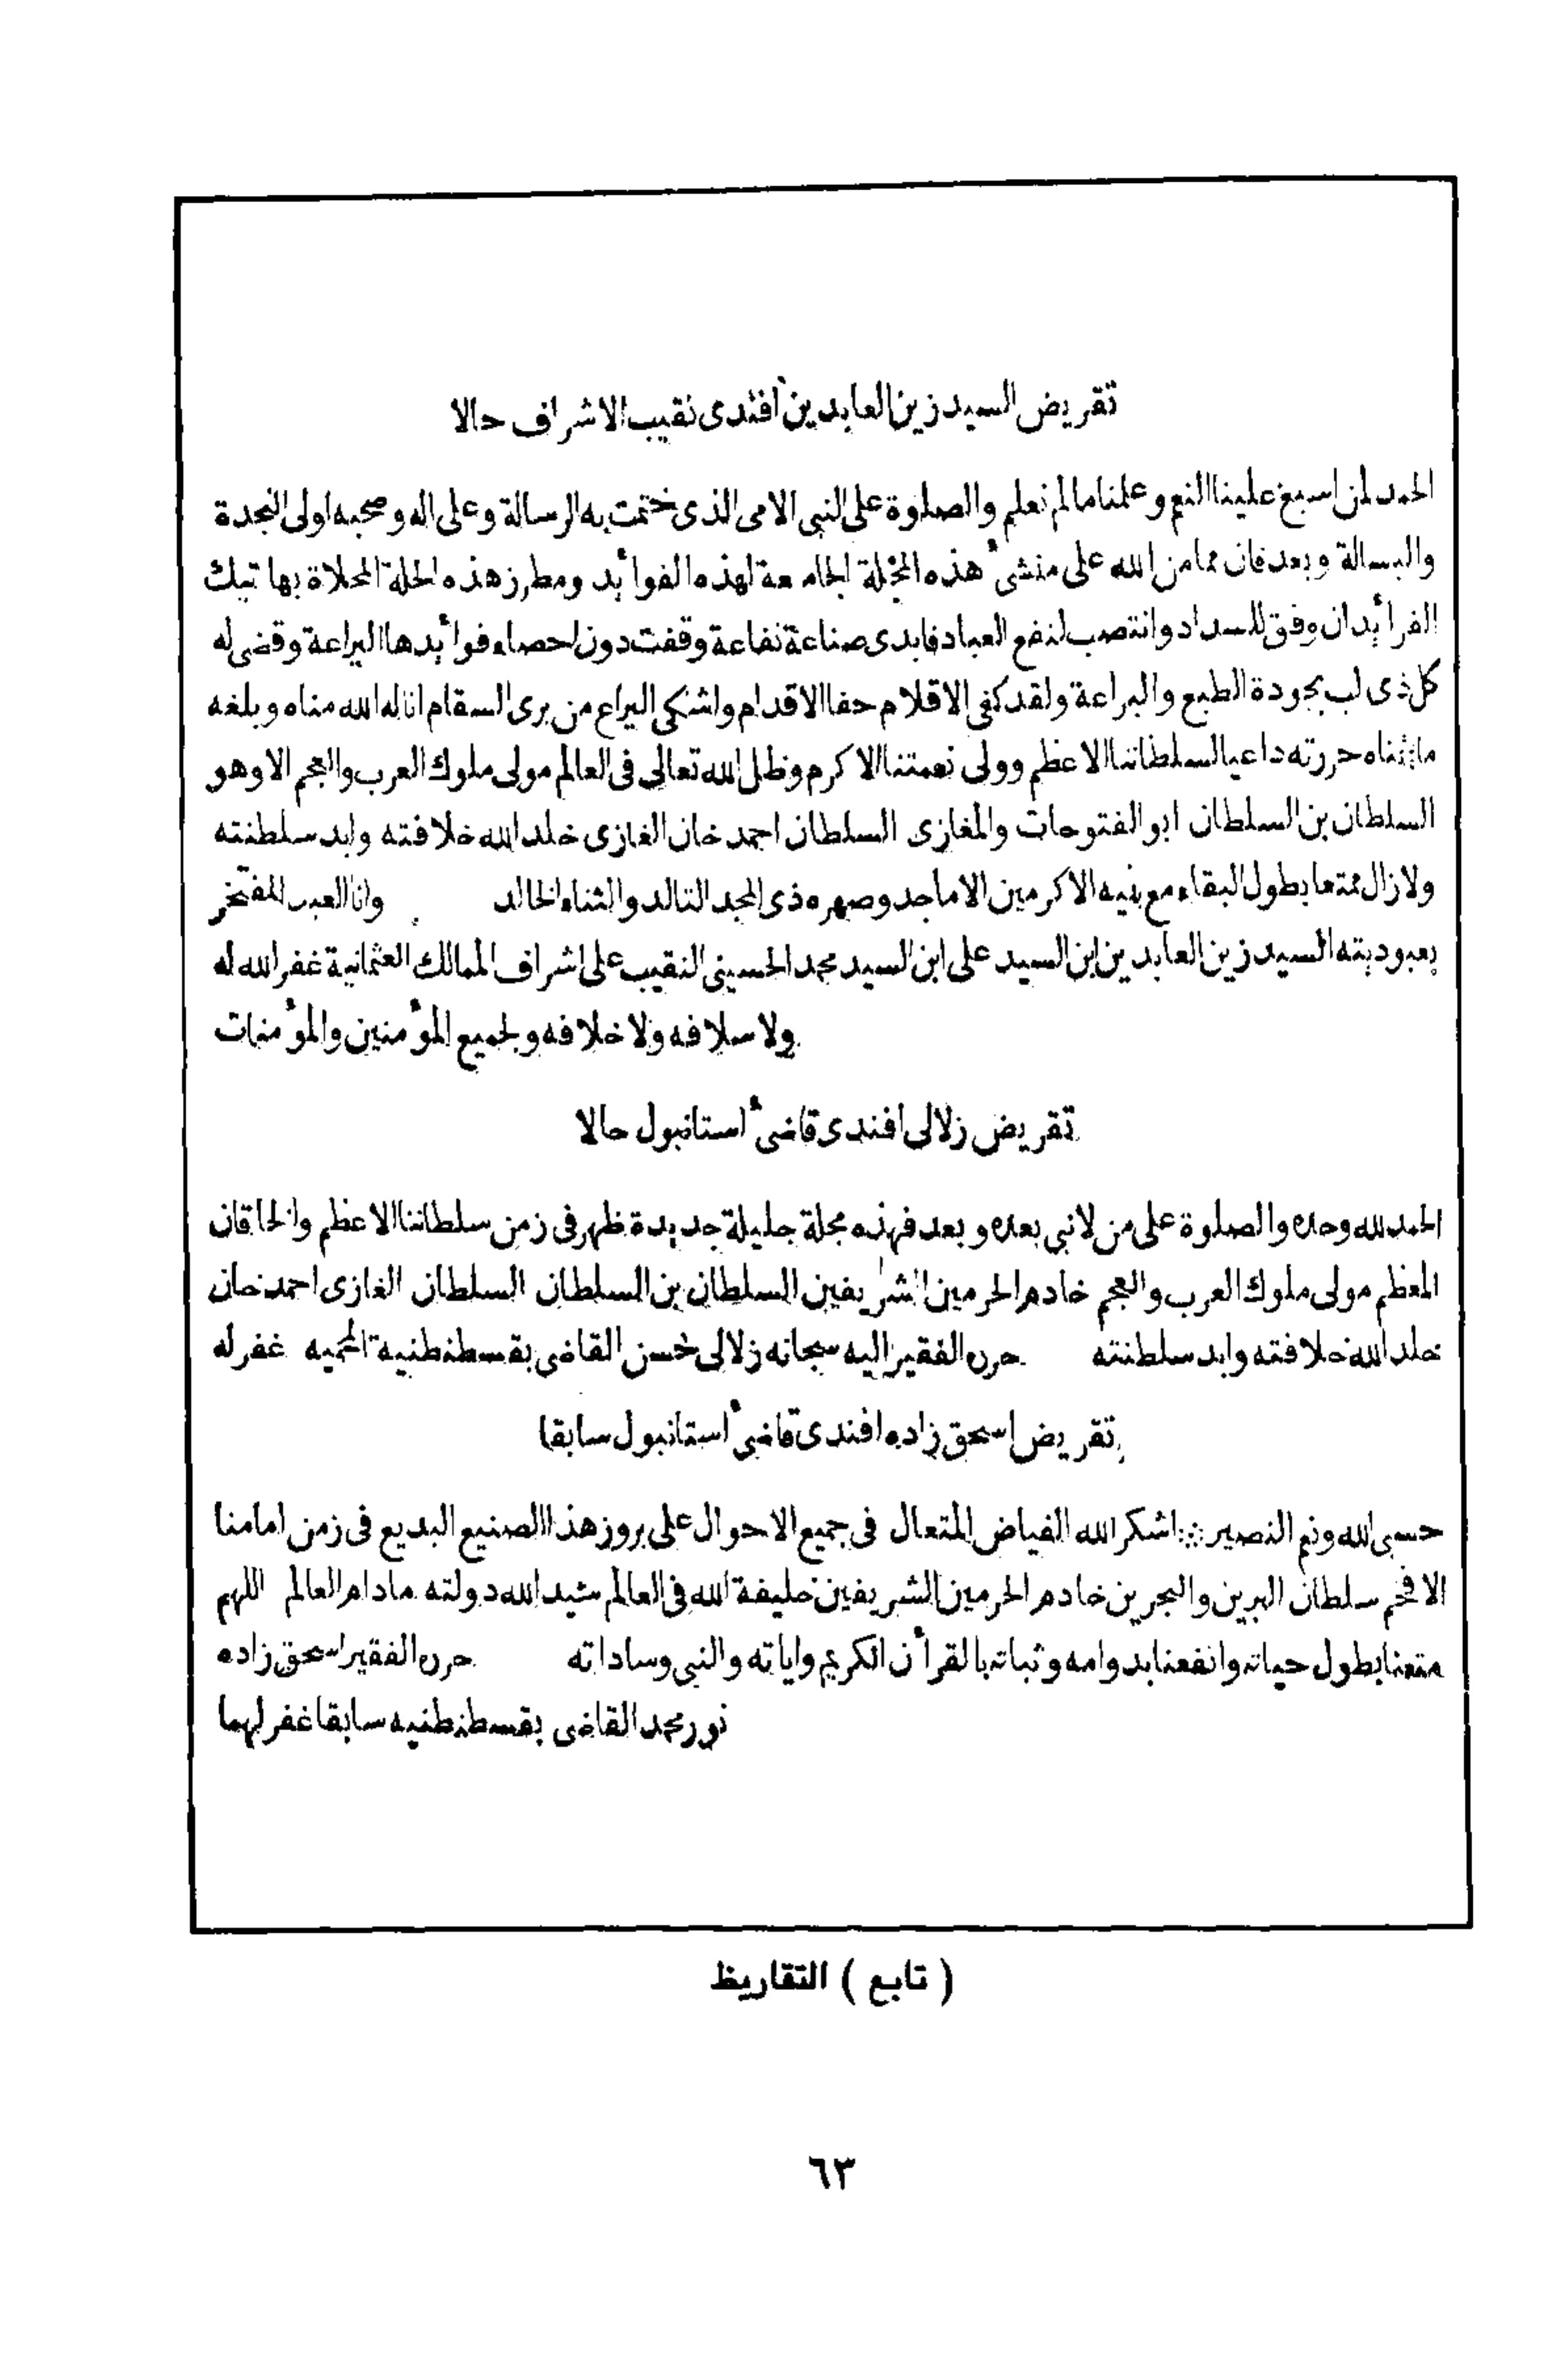 تقريض السيد زين العابدين افندى نقيب الاشراف حالا
الحمد لمن اسبغ علينا النعم وعلمنا مالم نعلم والصلوة على النبى الامى الذى ختمت به الرسالة وعلى اله وصحبه اولى النجدة
والبسالة وبعد فان مما من الله على منشئ هذه المجلة الجامعة لهذه الفوائد ومطرز هذه الحلة المحلاة بها تيك
الفرائد ان وفق للسداد وانتصب لنفع العباد فابدى صناعة نفاعة وقفت دون احصاء فوائدها اليراعة وقضى له
كل ذى لب بجودة الطبع والبراعة ولقد كفى الاقلام حفا الاقدام واشتكى اليراع من برى السقام اناله الله مناه وبلغه
مايتمناه حررته داعيا لسلطاننا الاعظم وولى نعمتنا الاكرم وظل الله تعالى فى العالم مولى ملوك العرب والعجم الا وهو
السلطان بن السلطان ابو الفتوحات والمغازى السلطان احمد خان الغازى خلد الله خلافته وابد سلطنته
ولازال ممتعا بطول البقاء مع بنيه الاكرمين الاماجد وصهره ذى المجد التالد والثناء الخالد وانا العبد المفتخر
بعبوديته السيد زين العابدين ابن السيد على ابن السيد محمد الحسينى النقيب على اشراف الممالك العثمانية غفر الله له
ولاسلافه ولاخلافه ولجميع المؤمنين والمؤمنات
تقريض زلالى افندى قاضئ استانبول حالا
الحمد لله وحده والصلوة على من لانبي بعده وبعد فهذه مجلة جليلة جديدة ظهر فى زمن سلطاننا الاعظم والخاقان
المعظم مولى ملوك العرب والعجم خادم الحرمين الشريفين السلطان بن السلطان السلطان الغازى احمد خان
خلد الله خلافته وابد سلطنته حرره الفقير اليه سبحانه زلالى حسن القاضى بقسطنطنية المحميه غفر له
تقريض اسحق زاده افندى قاضئ استانبول سابقا
حسبى الله ونعم النصير اشكر الله الفياض المتعال فى جميع الاحوال على بروز هذا الصنيع البديع فى زمن امامنا
الافخم سلطان البرين والبحرين خادم الحرمين الشريفين خليفة الله فى العالم شيد الله دولته مادام العالم اللهم
متعنا بطول حياته وانفعنا بدوامه وثباته بالقرأن الكريم واياته والنبى وساداته حرره الفقير اسحق زاده
نور محمد القاضى بقسطنطنيه سابقا غفر لهما
( تابع ) التقاريظ
٦٣